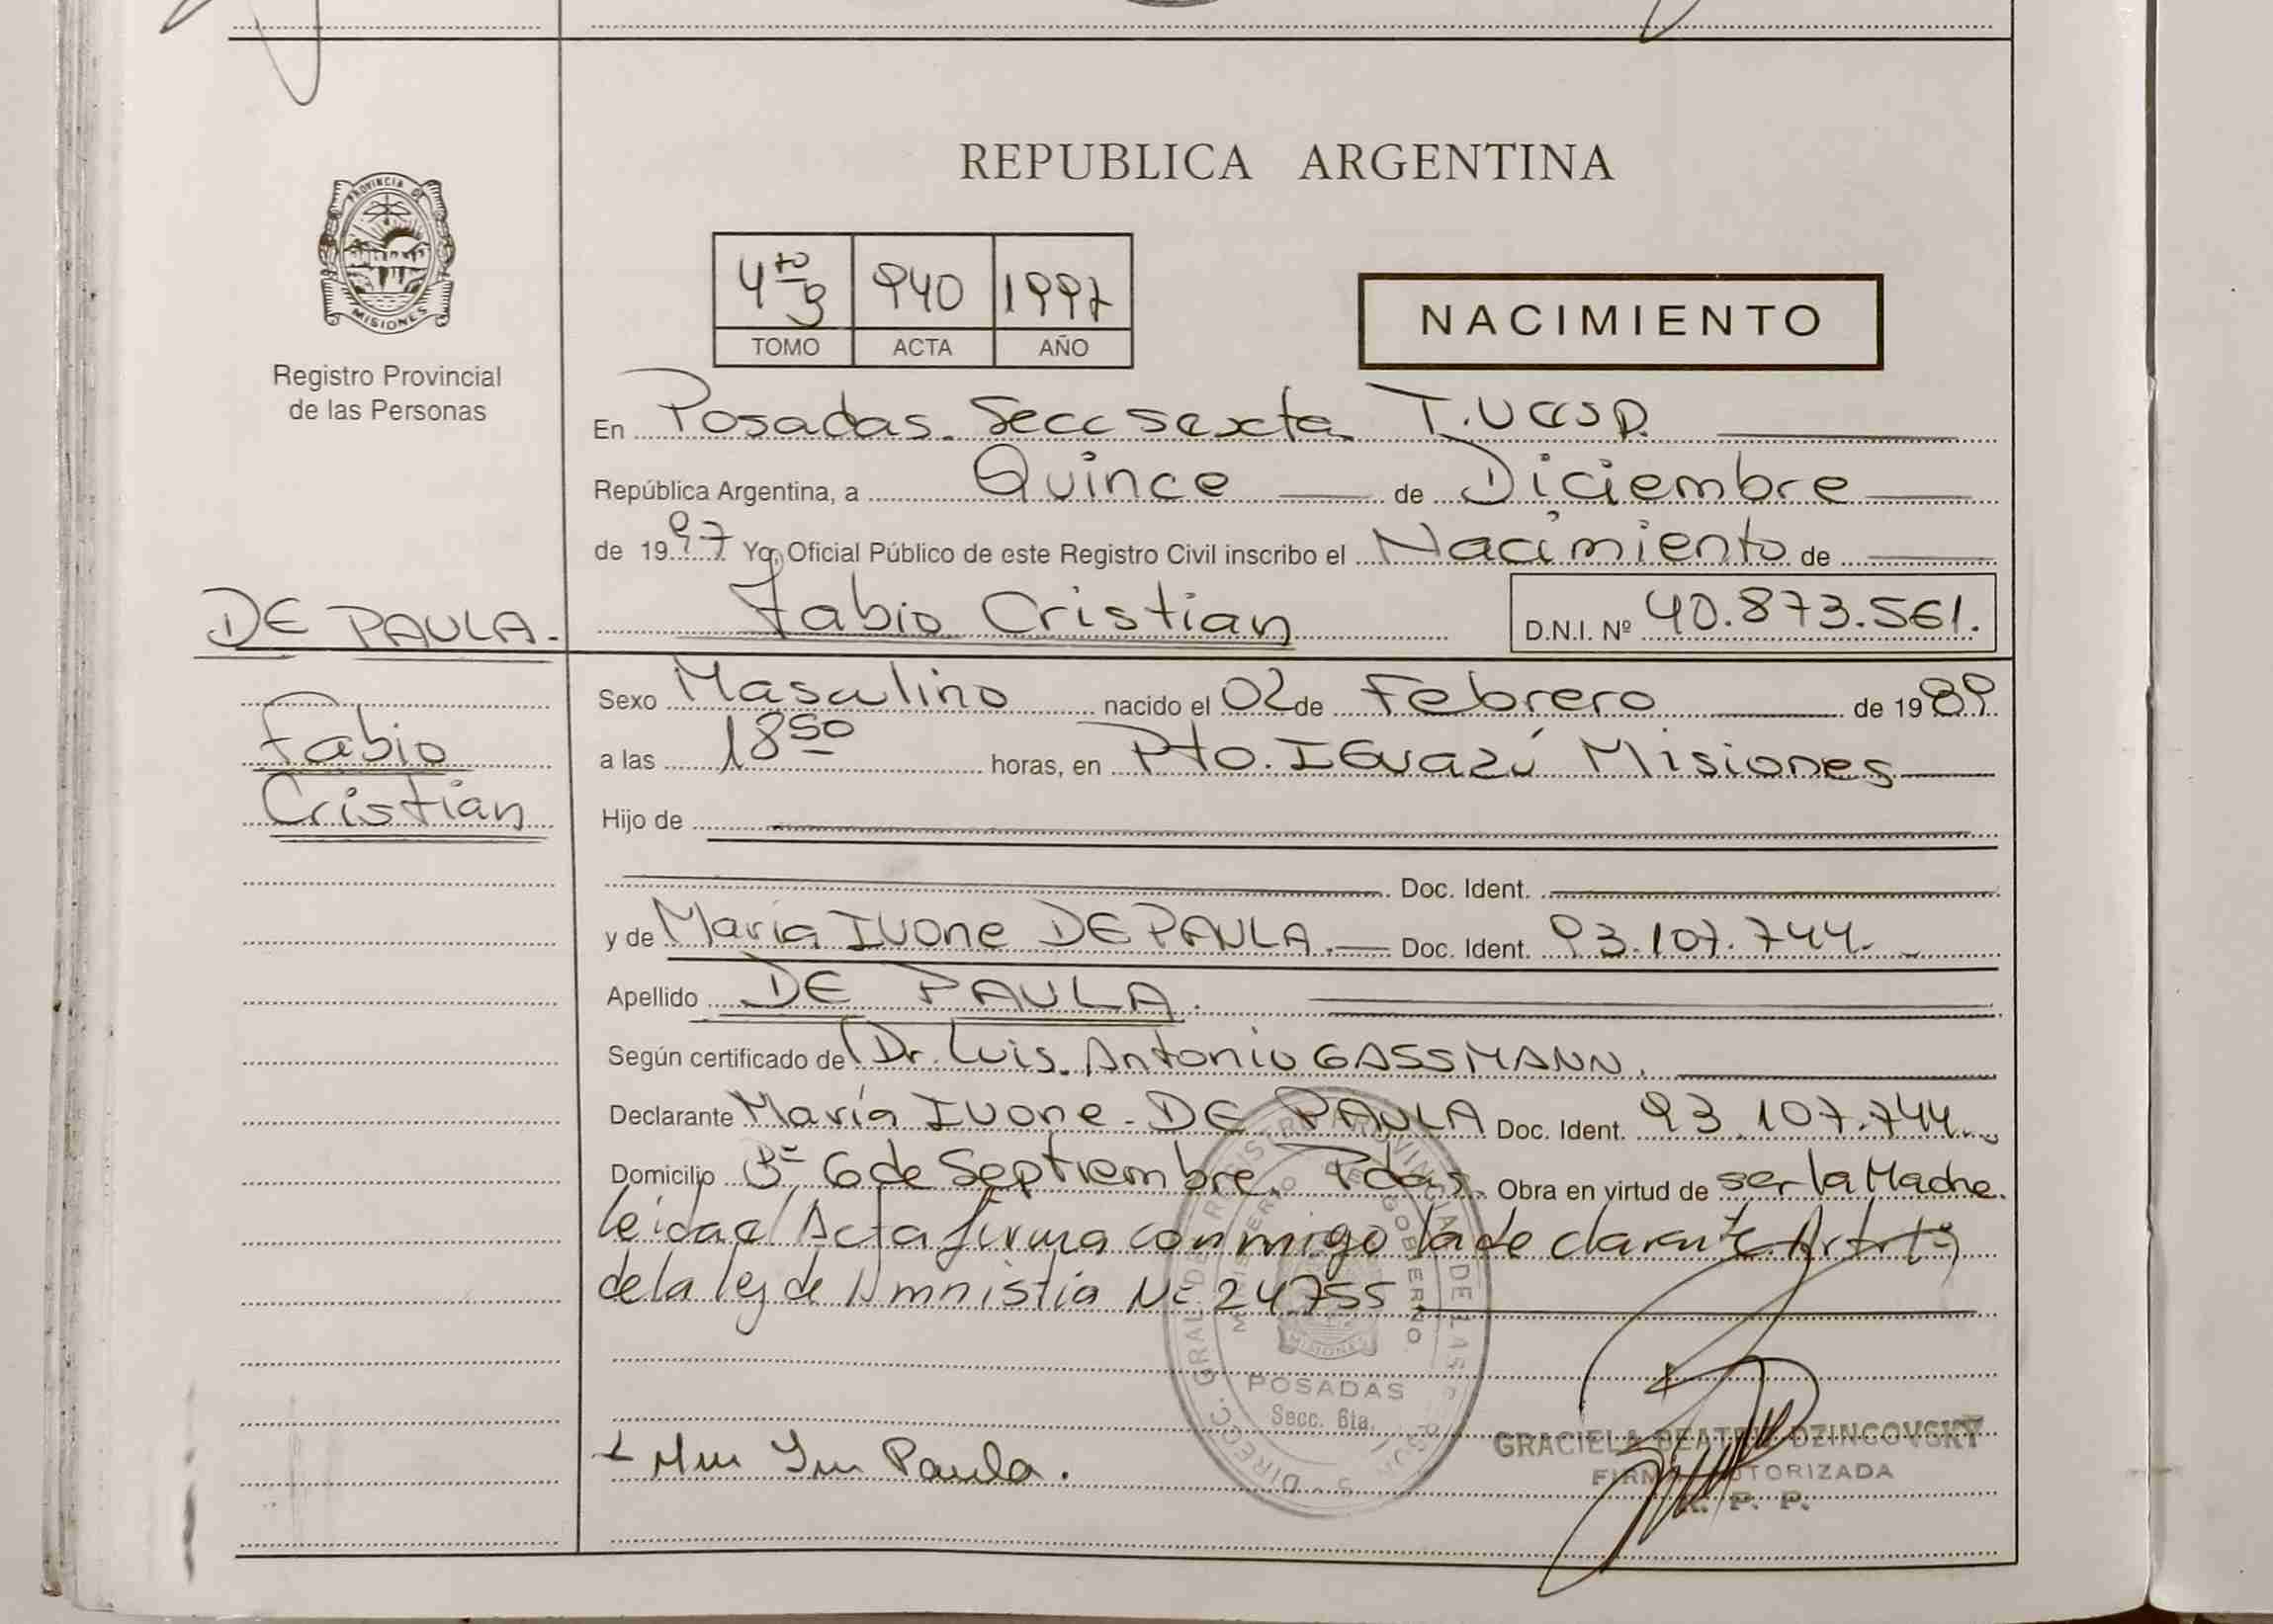 REPUBLICA ARGENTINA
PROVINCIA DE MISIONES
Registro Provincial
de las Personas
4to 940 1997
TOMO ACTA AÑO
NACIMIENTO
En Posadas. Secc sexta
República Argentina, a Quince de Diciembre
de 1997 Yo, Oficial Público de este Registro Civil inscribo el Nacimiento de
DE PAULA.
Fabio Cristian D.N.I. Nº 40.873.561.
Fabio
Cristian
Sexo Masculino nacido el 02 de Febrero de 1989
a las 18 50 horas, en Pto. IGuazú Misiones
Hijo de
Doc. Ident.
y de María IVone DE PAULA. Doc. Ident. 93.107.744.
Apellido DE PAULA.
Según certificado de Dr. Luis. Antonio GASSMANN.
Declarante María IVone - DE PAULA Doc. Ident. 93.107.744.
Domicilio Bº 6 de Septiembre, Pdas. Obra en virtud de ser la Madre.
leida el Acta firma conmigo la declarante
de la ley de Amnistia Nº 24755
DIRECC. GRAL DE REGISTRO PROVINCIAL DE LAS PERSONAS
MINISTERIO DE GOBIERNO
MISIONES
POSADAS
Secc. 6ta.
Paula.
GRACIELA BEATRIZ DZINCOVSKY
FIRMA AUTORIZADA
R. P. P.